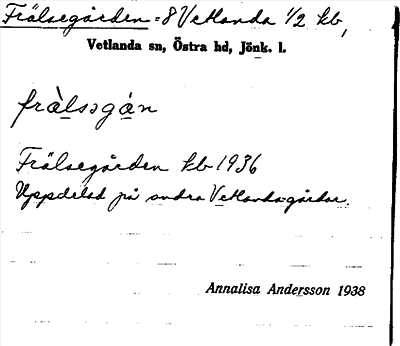 Frälsegården = 8 Vetlanda 1/2 kb,
Vetlanda sn, Östra hd, Jönk. l.
frà̀lsəgán
Frälsegården kb 1936
Uppdelad på andra Vetlandagårdar.
Annalisa Andersson 1938